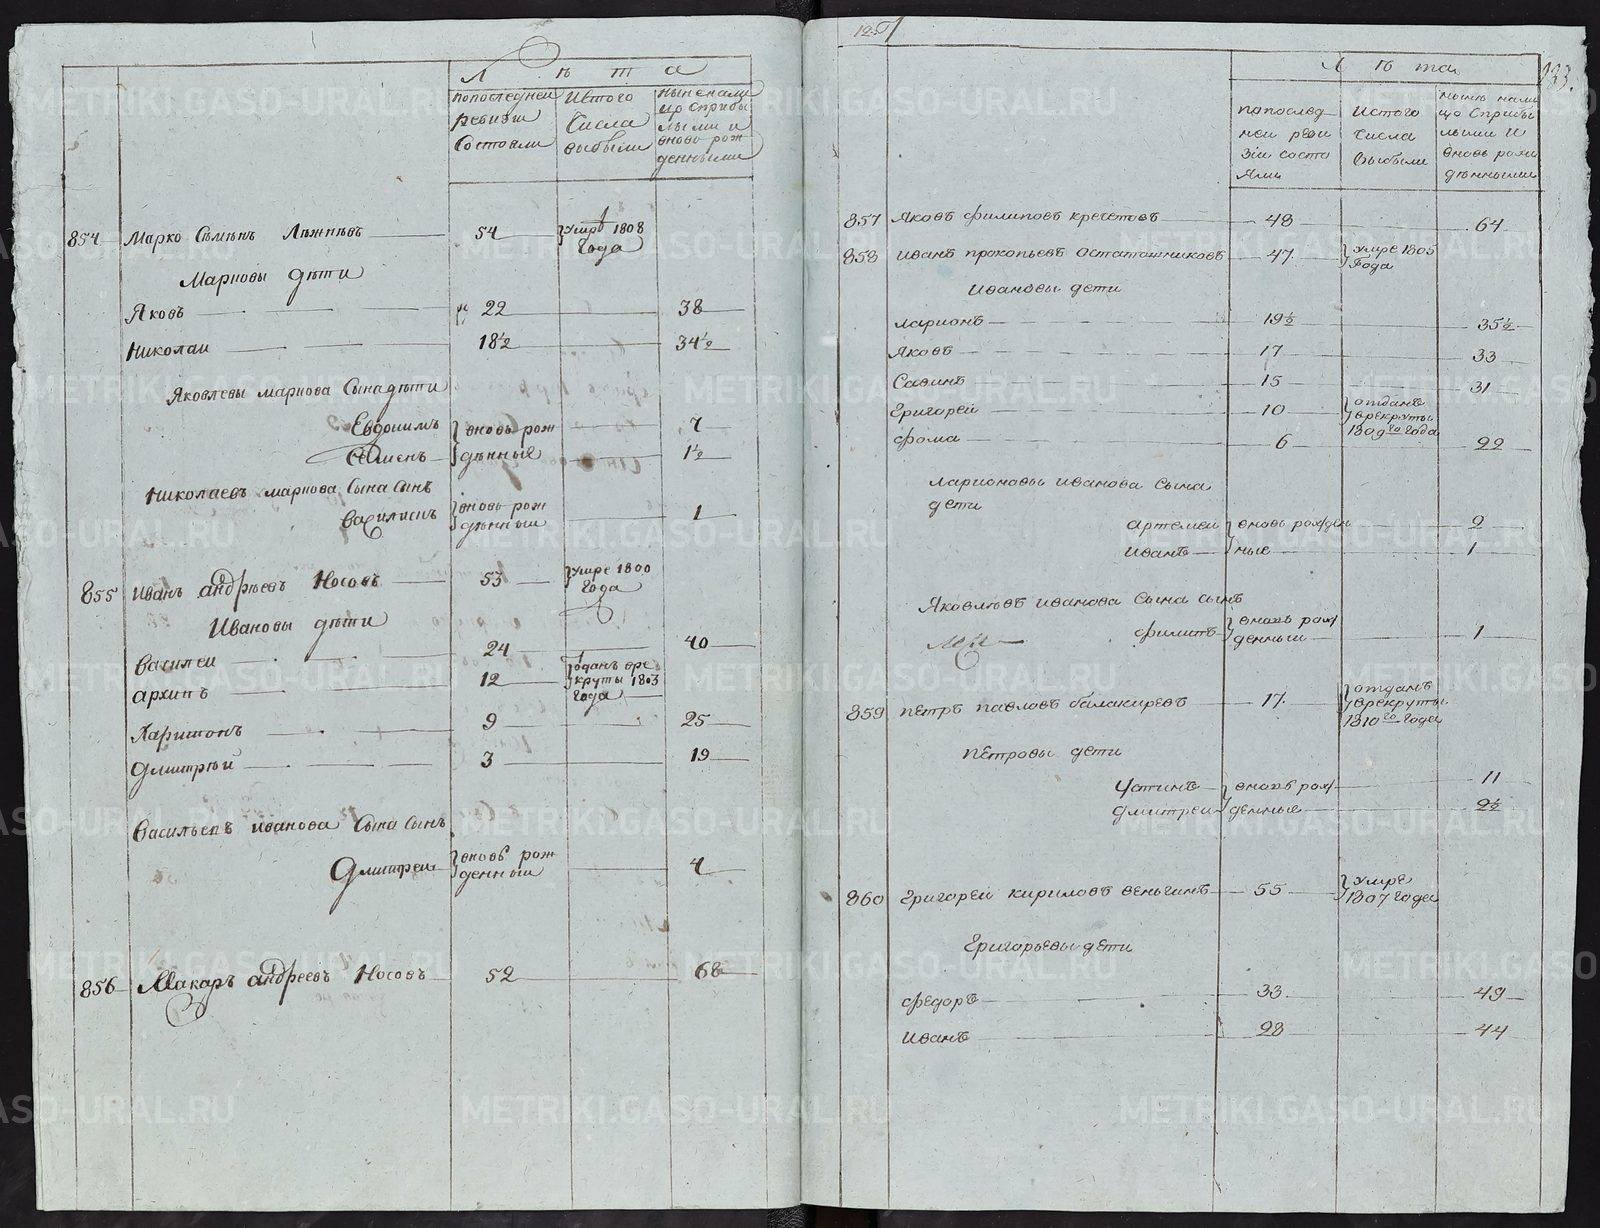 Лѣта
попоследней ревизи состояли
Истого числа выбыли
ныне на лицо сприбылыми и вновь рожденными
854 Марко Сѣмѣнъ 54 умрѣ 1808 года
Марковы дѣти
Яковъ 22 38
Николаи 18½ 34½
Яковлевы маркова Сына дѣти
Евдокимъ вновь рож 7
Семенъ дѣнные 1½
Николаевъ маркова Сына Сынъ
Василисъ вновь рожденный 1
855 Иванъ андрѣевъ Носовъ 53 умре 1800 года
Ивановы дѣти
Василеи 24 40
архипъ 12 оданъ вре круты 1803 года
Харитонъ 9 25
Дмитрѣй 3 19
Васильевъ иванова Сына Сынъ
Дмитреи вновь рож денный 4
856 Макаръ андреевъ Носовъ 52 68
133.
Лѣта
попослед ней реви зiи состо яли
Истого числа выбыли
нынѣ нали цо сприбы лыми и вновь рож денными
857 Яковъ филиповъ кречетовъ 48 64
858 иванъ прокопьевъ Остаточниковъ 47 умре 1805 года
Ивановы дети
ларионъ 19½ 35½
Яковъ 17 33
Савинъ 15 31
Григорей 10 отданъ врекруты 1809го года
фома 6 22
ларионовы иванова сына
дети
артемеи вновь рожден 2
иванъ ные 1
Яковлевъ иванова сына сынъ
филипъ вновь рож денный 1
859 петръ павловъ балакиревъ 17 отданъ врекруты 1810го года
петровы дети
Устинъ вновь рож 11
дмитреи денные 2½
860 Григорей кириловъ веньгинъ 55 умре 1807 года
Григорьевы дети
федоръ 33 49
иванъ 28 44
METRIKI.GASO-URAL.RU